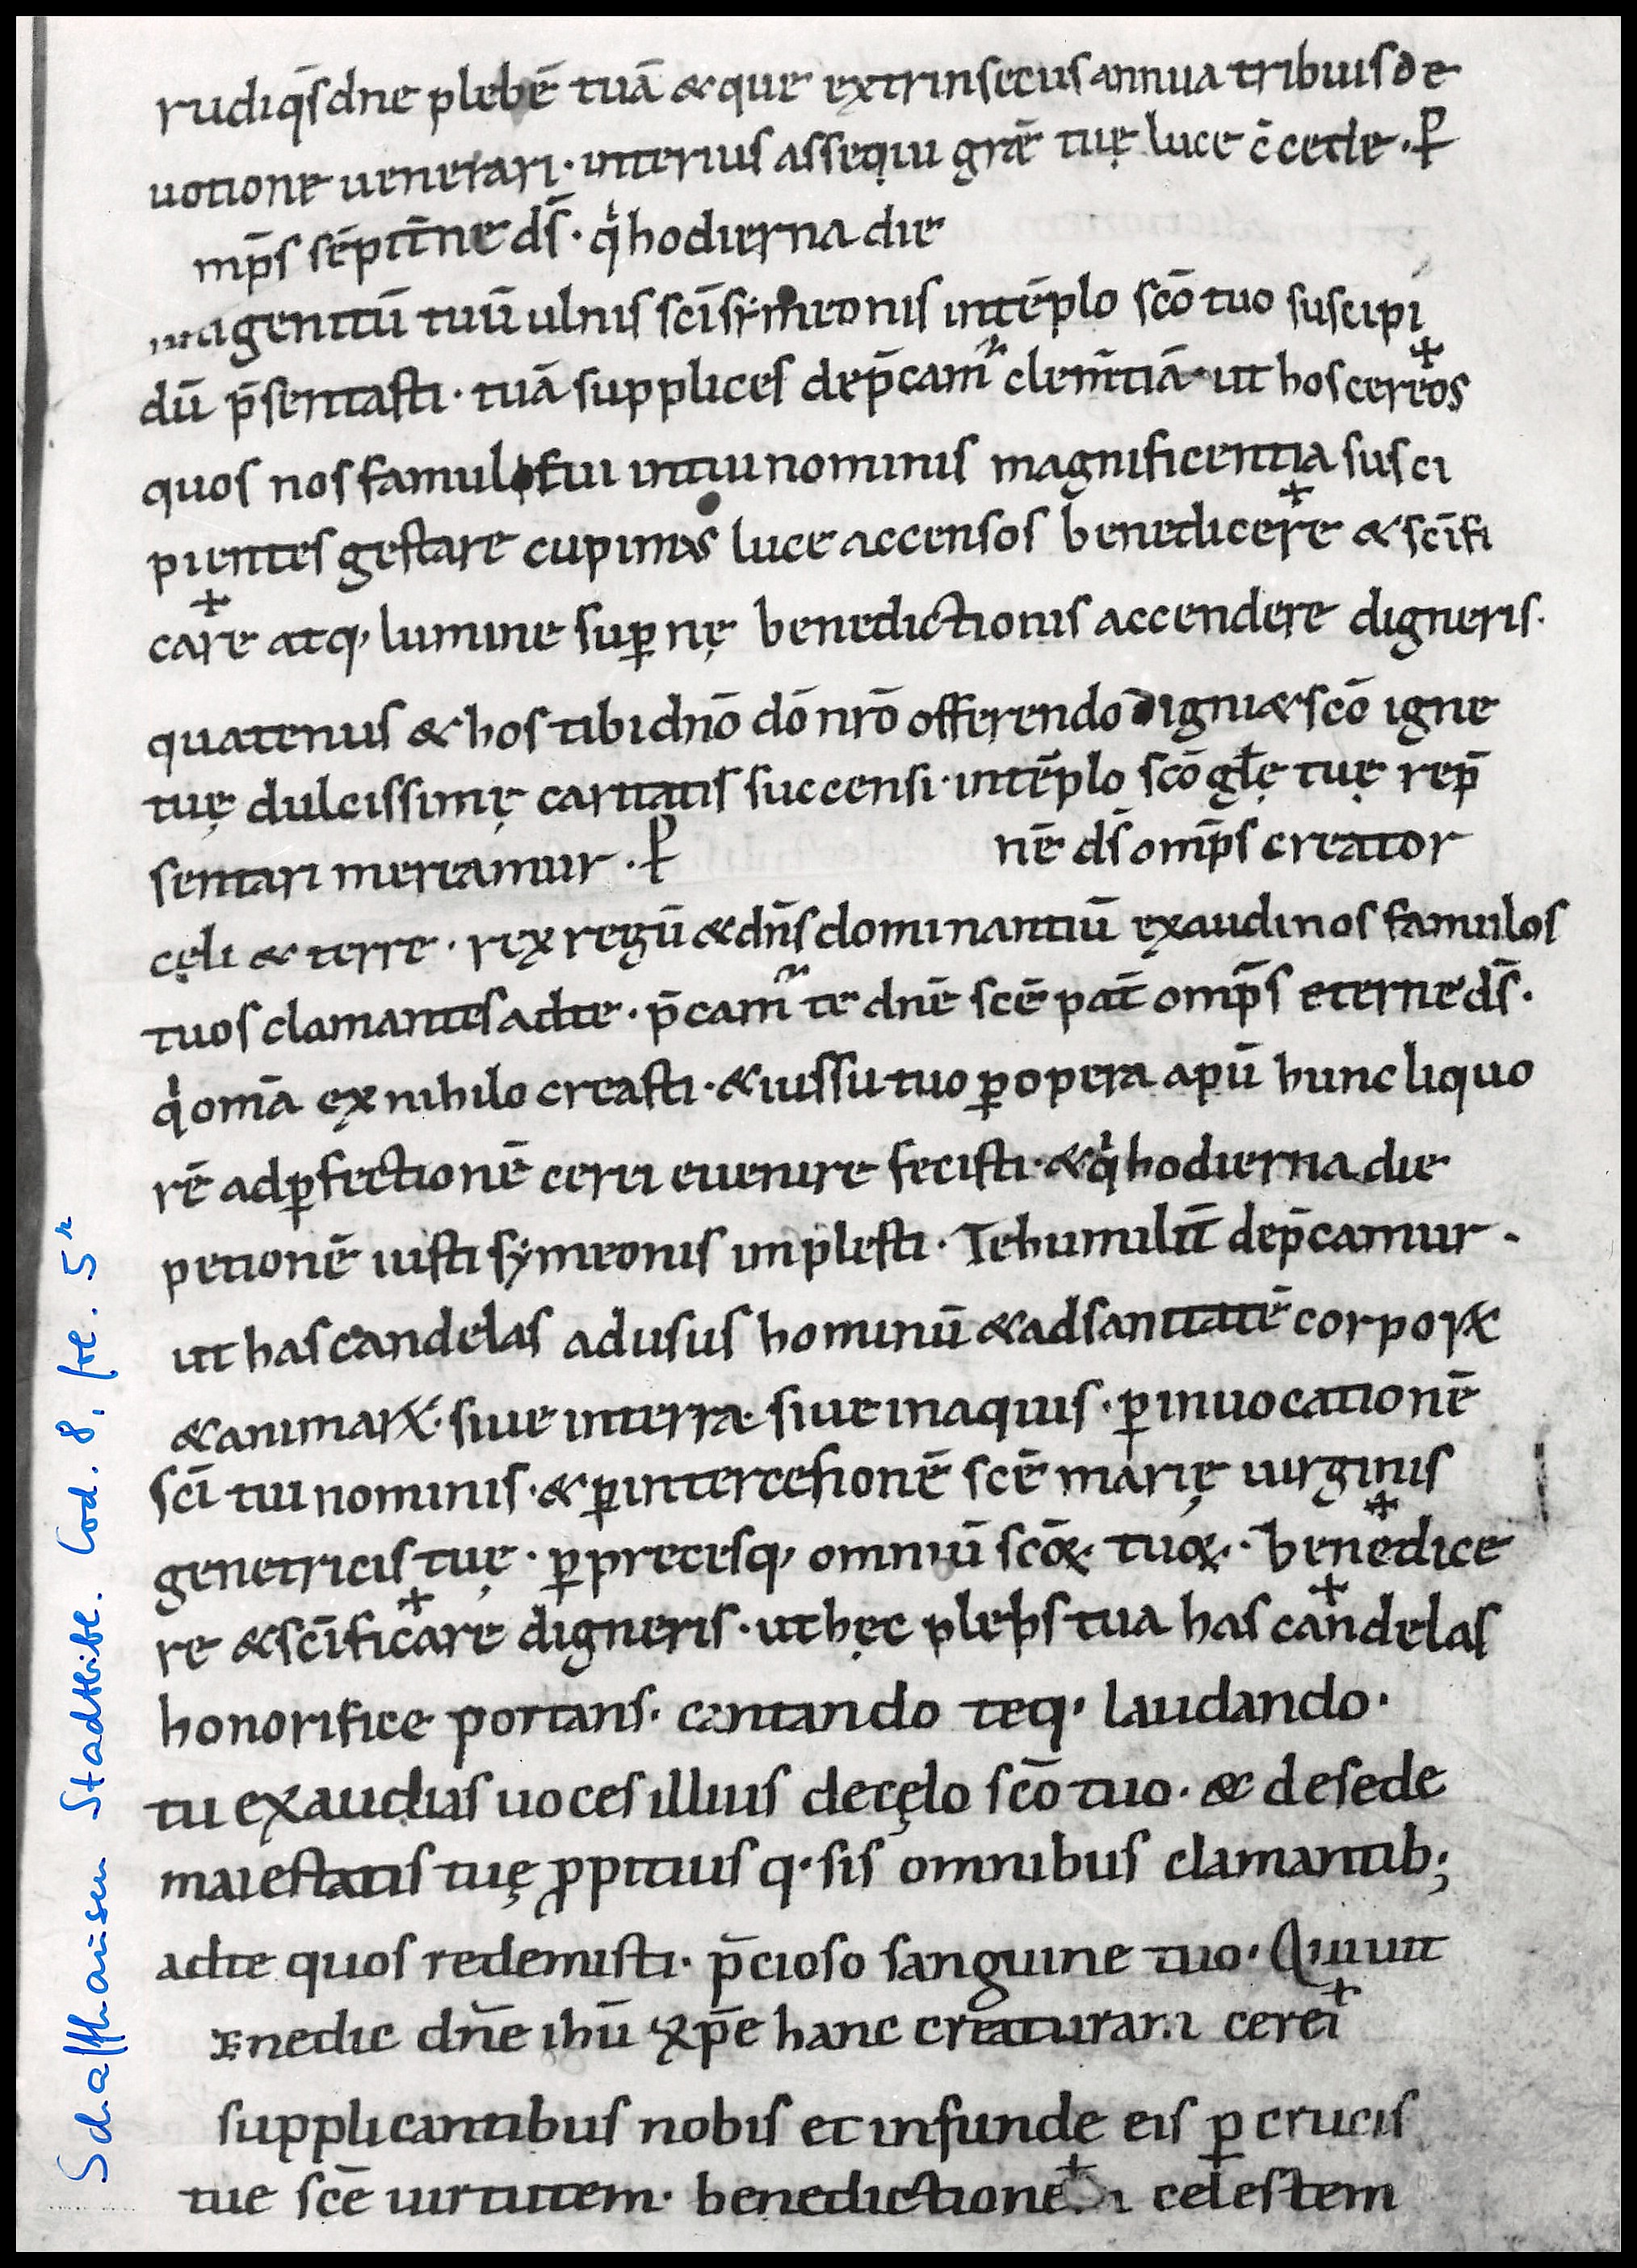 rudi qs̄ dn̄e plebē tuā &que extrinsecus annua tribuis de
uotione uenerari· interius assequi grā̄e tuę luce c̄cede · P̱
mp̄s sēpit̄ne ds̄ · qͥ hodierna die
nigenitū tuū ulnis sc̄i simeonis in tēplo sc̄o tuo suscipi
dū p̄sentasti · tuā supplices dep̄camʳ clem̄tiā · ut hos cereos
quos nos famuli tui in tui nominis magnificentia susci
pientes gestare cupimus luce accensos benedicere & sc̄ifi
care atq, lumine sup̱nę benedictionis accendere digneris.
quatenus & hos tibi dn̄o dō nr̄o offerendo digni & sc̄o igne
tuę dulcissimę caritatis succensi · in tēplo sc̄o gl̄ę tuę rep̄
sentari mereamur · P̱
nē ds̄ omp̄s creator
cęli & terre · rex regū & dn̄s dominantiū exaudi nos famulos
tuos clamantes ad te · p̄camʳ te dn̄e sc̄e pat̄ omp̄s eterne ds̄ ·
qͥ om̄a ex nihilo creasti · & iussu tuo p̱ opera apū hunc liquo
rē ad p̱fectionē cerei euenire fecisti · & qͥ hodierna die
petionē iusti sẏmeonis implesti · Te humilit̄ dep̄camur ·
ut has candelas ad usus hominū & ad sanitatē corpoꝝ
& animaꝝ · siue in terra siue in aquis · p̱ inuocationē
sc̄i tui nominis · & p̱ intercessionē sc̄e marię uirginis
genetricis tuę · p̱ precesq, omniū sc̄oꝝ tuoꝝ · benedice
re & sc̄ificare digneris · ut hęc plebs tua has candelas
honorifice portans · cantando teq, laudando ·
tu exaudias uoces illius de cęlo sc̄o tuo · & de sede
maiestatis tuę ꝓpitius q· sis omnibus clamantib;
ad te quos redemisti · p̄cioso sanguine tuo · Qui uit
enedic dn̄e ihū xp̄e hanc creaturam cerei
supplicantibus nobis et infunde eis p̱ crucis
tue sc̄e uirtutem · benedictionem celestem
Schaffhausen Stadtbibl. Cod. 8. fol. 5ʳ